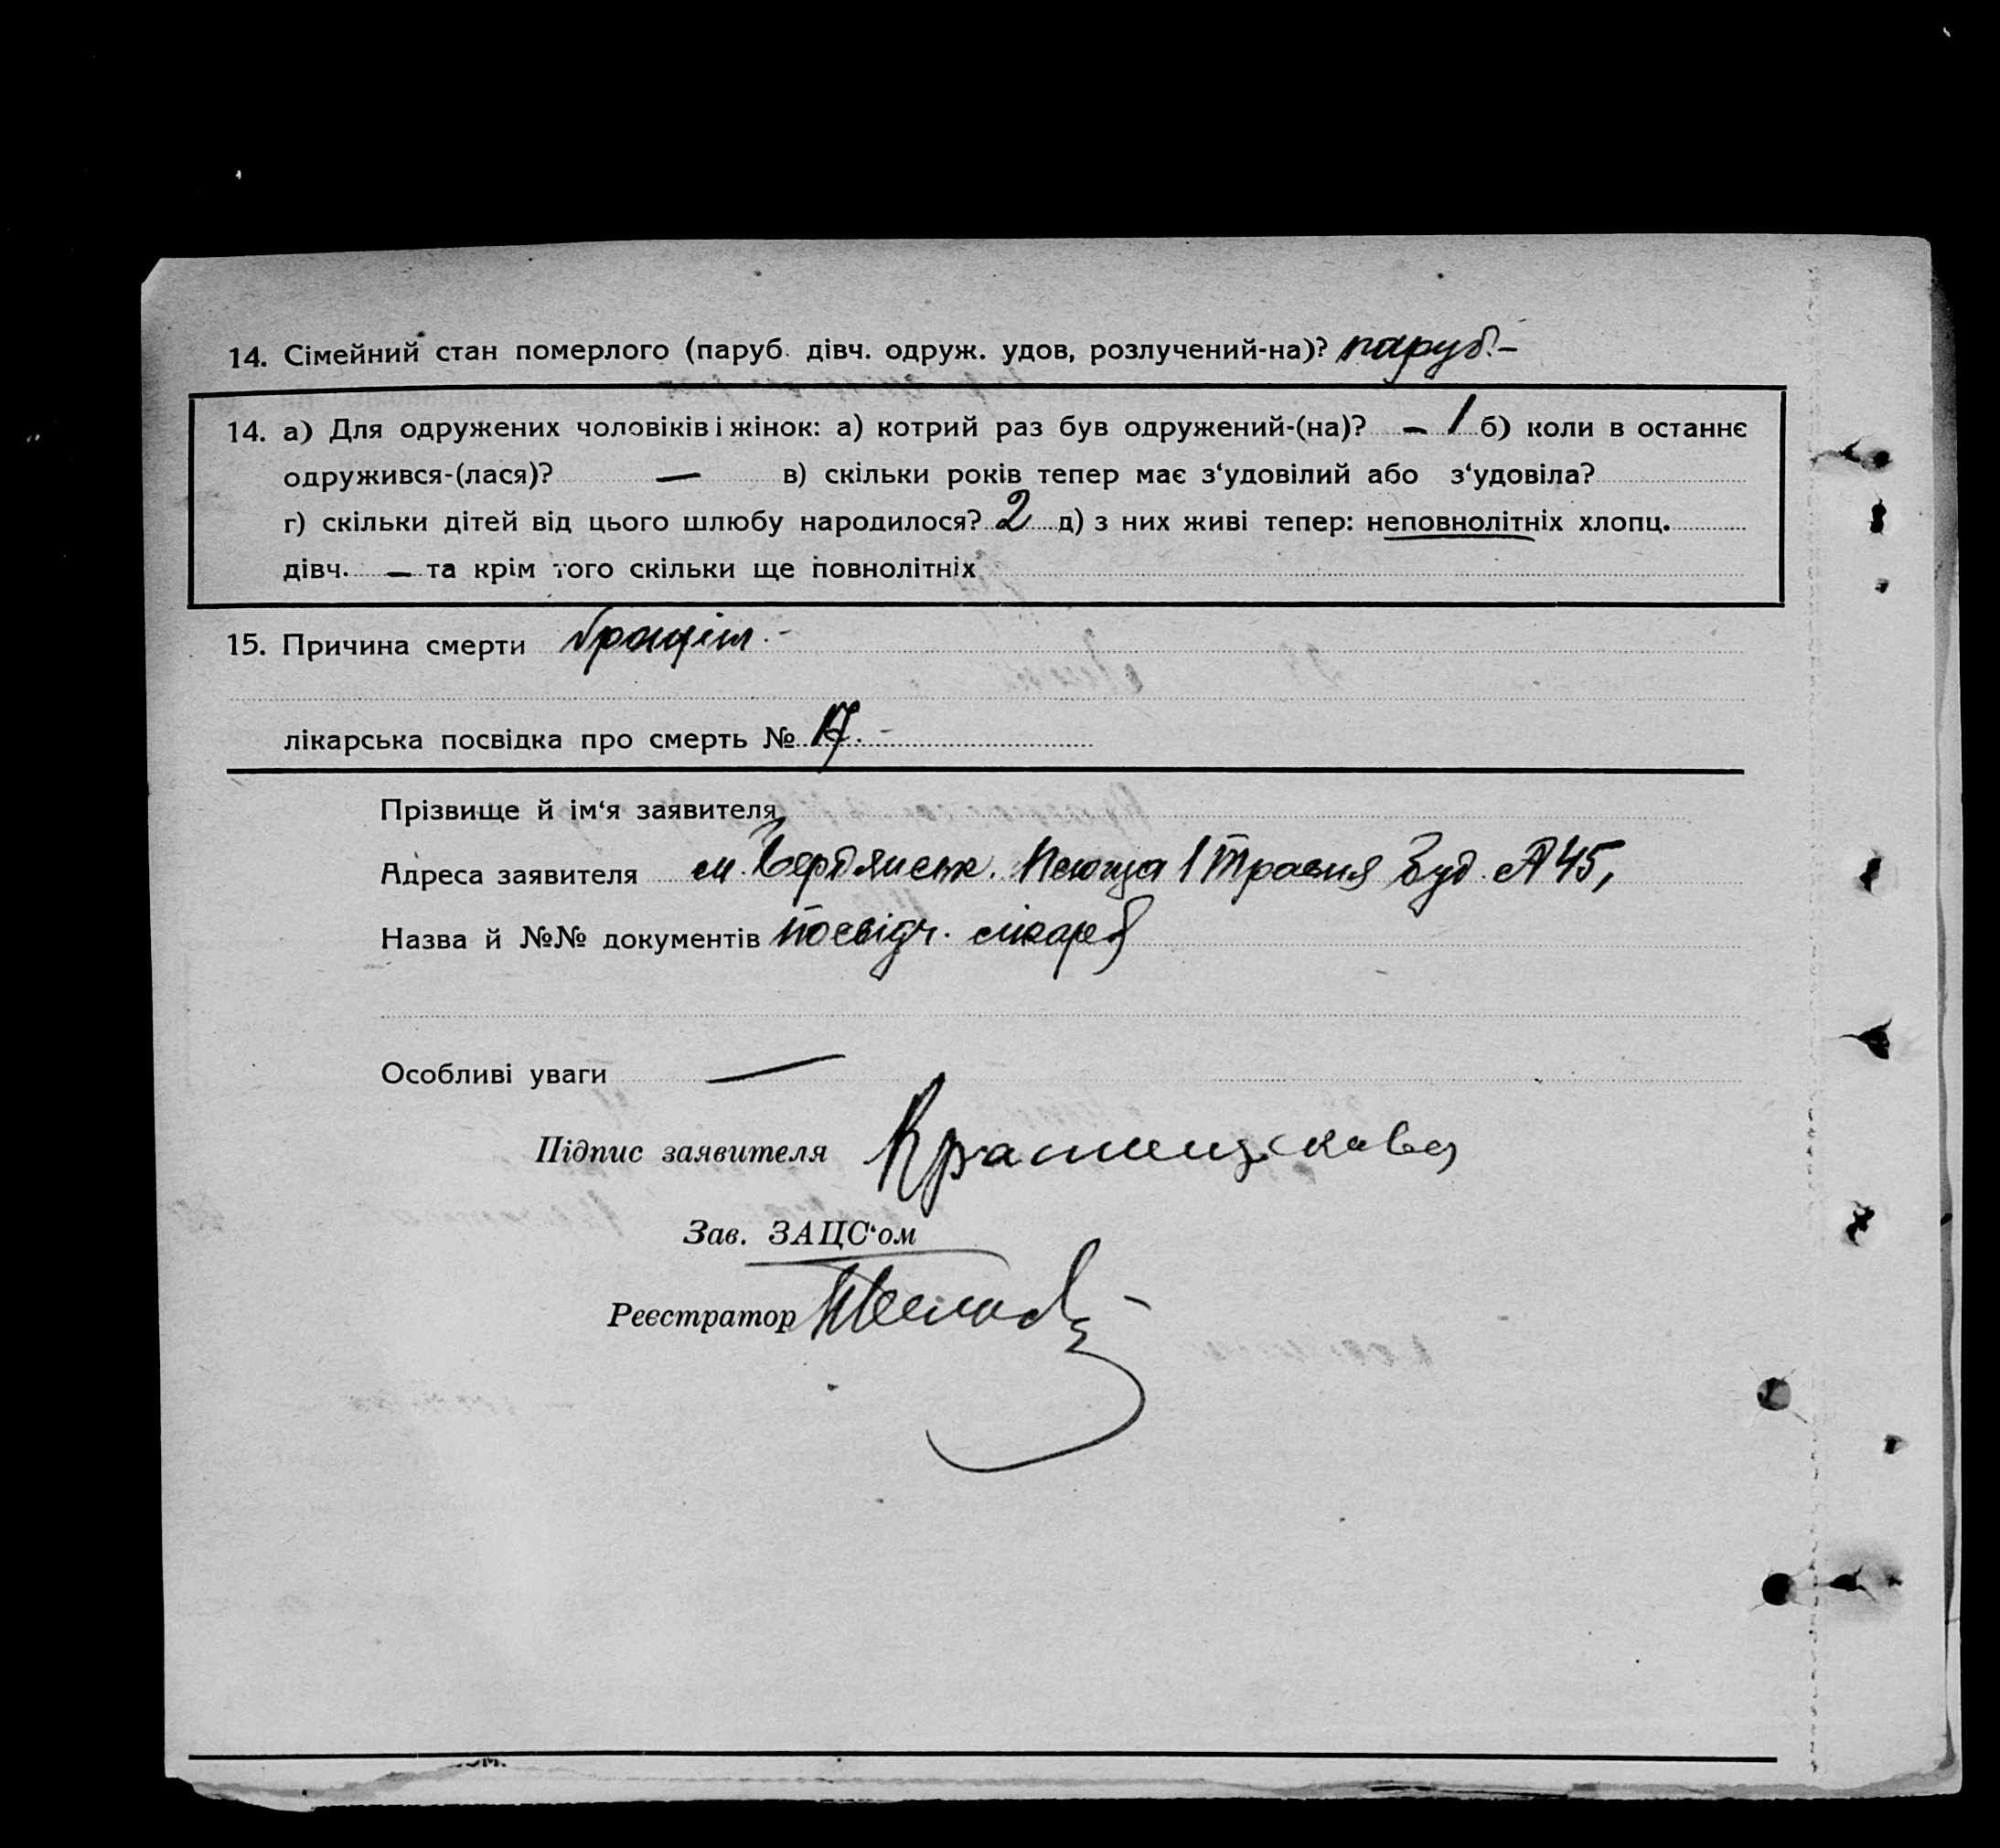 14. Сімейний стан померлого (паруб. дівч. одруж. удов, розлучений-на)? паруб. –
14. а) Для одружених чоловіків і жінок: а) котрий раз був одружений-(на)? – / б) коли в останнє
одружився-(лася)? — в) скільки років тепер має з‘удовілий або з‘удовіла?
г) скільки дітей від цього шлюбу народилося? 2 д) з них живі тепер: неповнолітніх хлопц.
дівч. — та крім того скільки ще повнолітніх
15. Причина смерти
лікарська посвідка про смерть № 17. –
Прізвище й ім‘я заявителя
Адреса заявителя м. Бердянськ. Площа 1 Травня буд. 45,
Назва й №№ документів посвідч. лікаря
Особливі уваги —
Підпис заявителя
Зав. ЗАЦС‘ом
Реєстратор